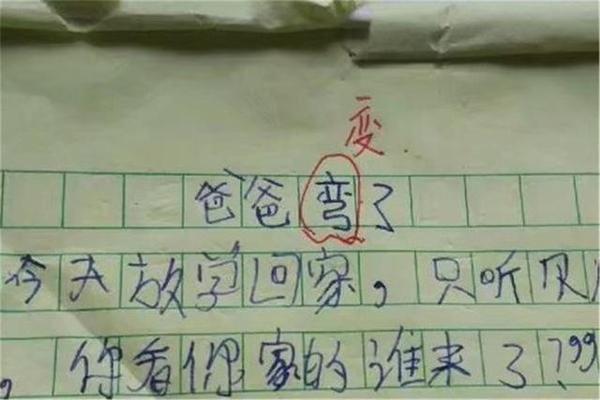 变
爸爸弯了
今天放学回家，只听见
，你看你家的谁来了？”